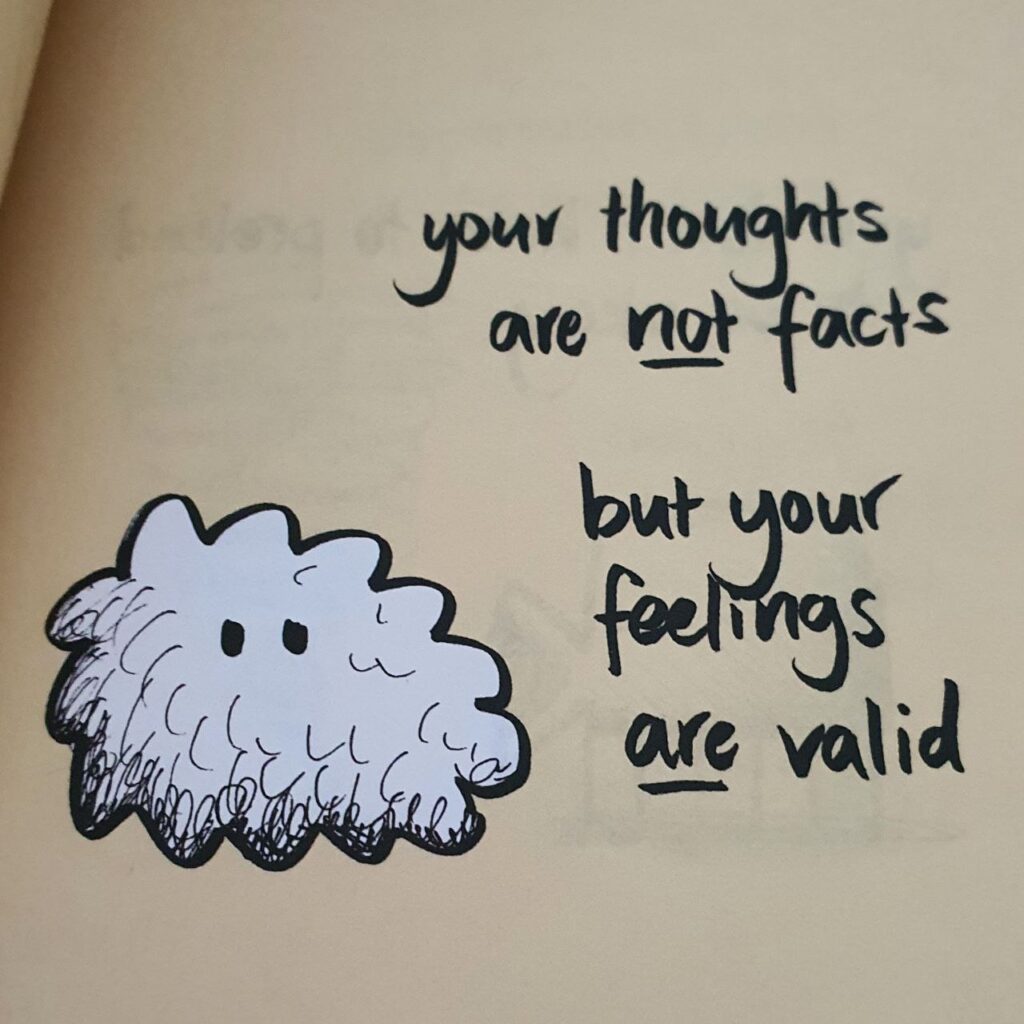 your thoughts
are not facts
but your
feelings
are valid